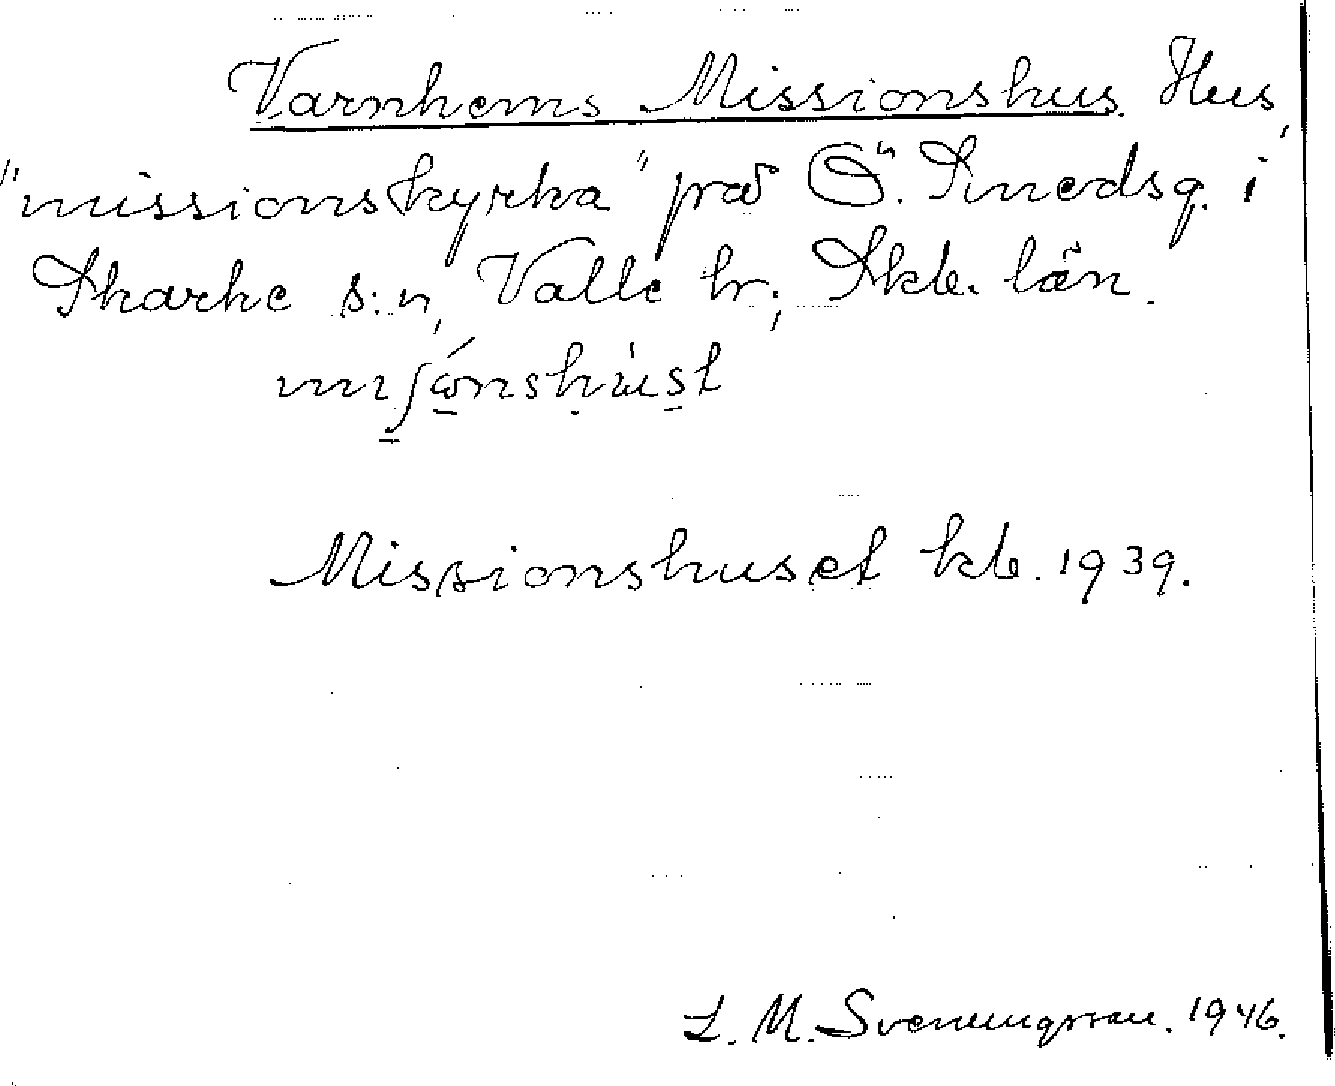 Varnhems Missionshus. Hus,
"missionskyrka" på Ö. Smedsg. i
Skarke s:n, Valle hr; Skbg. län.
Missionshuset kb. 1939.
L. M. Svenungsson. 1946.